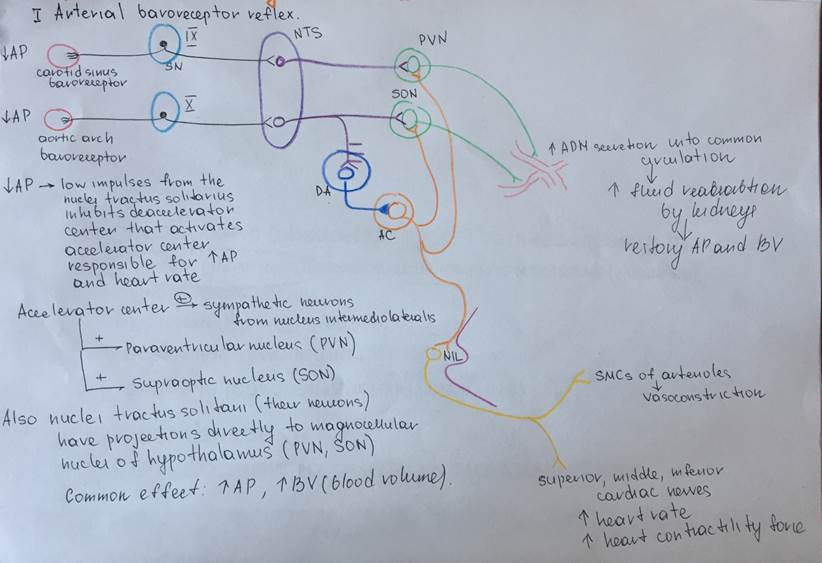 I Arterial baroreceptor reflex.
↓AP
IX
SN
carotid sinus
baroreceptor
NTS
PVN
SON
↓AP
X
aortic arch
baroreceptor
DA
AC
↑ ADH secretion into common
circulation
↑ fluid reabsorbtion
by kidneys
restory AP and BV
↓AP → low impulses from the
nuclei tractus solitarius
inhibits deaccelerator
center that activates
accelerator center
responsible for ↑AP
and heart rate
Accelerator center + → sympathetic neurons
from nucleus intermediolateralis
+ Paraventricular nucleus (PVN)
+ Supraoptic nucleus (SON)
Also nuclei tractus solitarii (their neurons)
have projections directly to magnocellular
nuclei of hypothalamus (PVN, SON)
Common effect: ↑AP, ↑BV (blood volume).
NIL
SMCs of arterioles
vasoconstriction
superior, middle, inferior
cardiac nerves
↑ heart rate
↑ heart contractility force